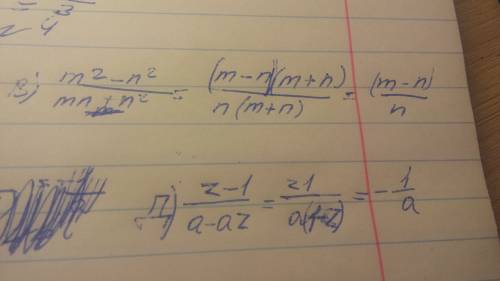 = 3
4
В) m² - n² / mn + n² = (m-n)(m+n) / n(m+n) = (m-n) / n
Д) z-1 / a-az = z1 / a(1-z) = - 1 / a